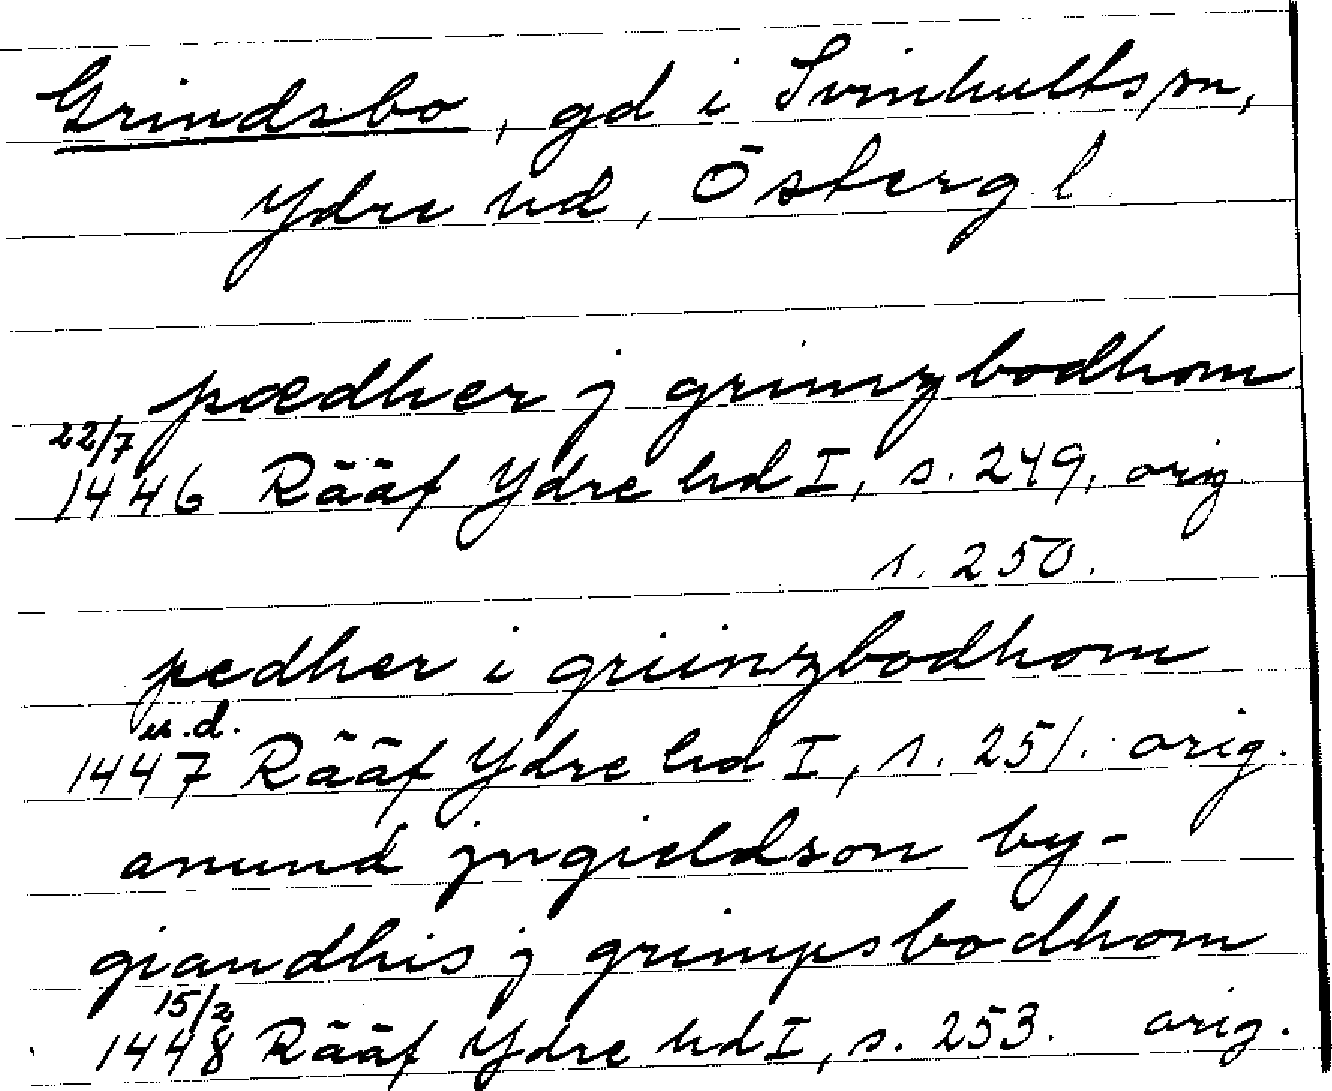 Grindsbo, gd i Svinhults sn,
Ydre hd, Östergl
pædher j grimzbodhom
22/7
1446 Rääf Ydre hd I, s. 249, orig
s. 250.
pedher i griimzbodhom
u.d.
1447 Rääf Ydre hd I, s. 251. orig.
anund jngieldson by-
giandhis j grimpsbodhom
15/2
1448 Rääf Ydre hd I, s. 253. orig.